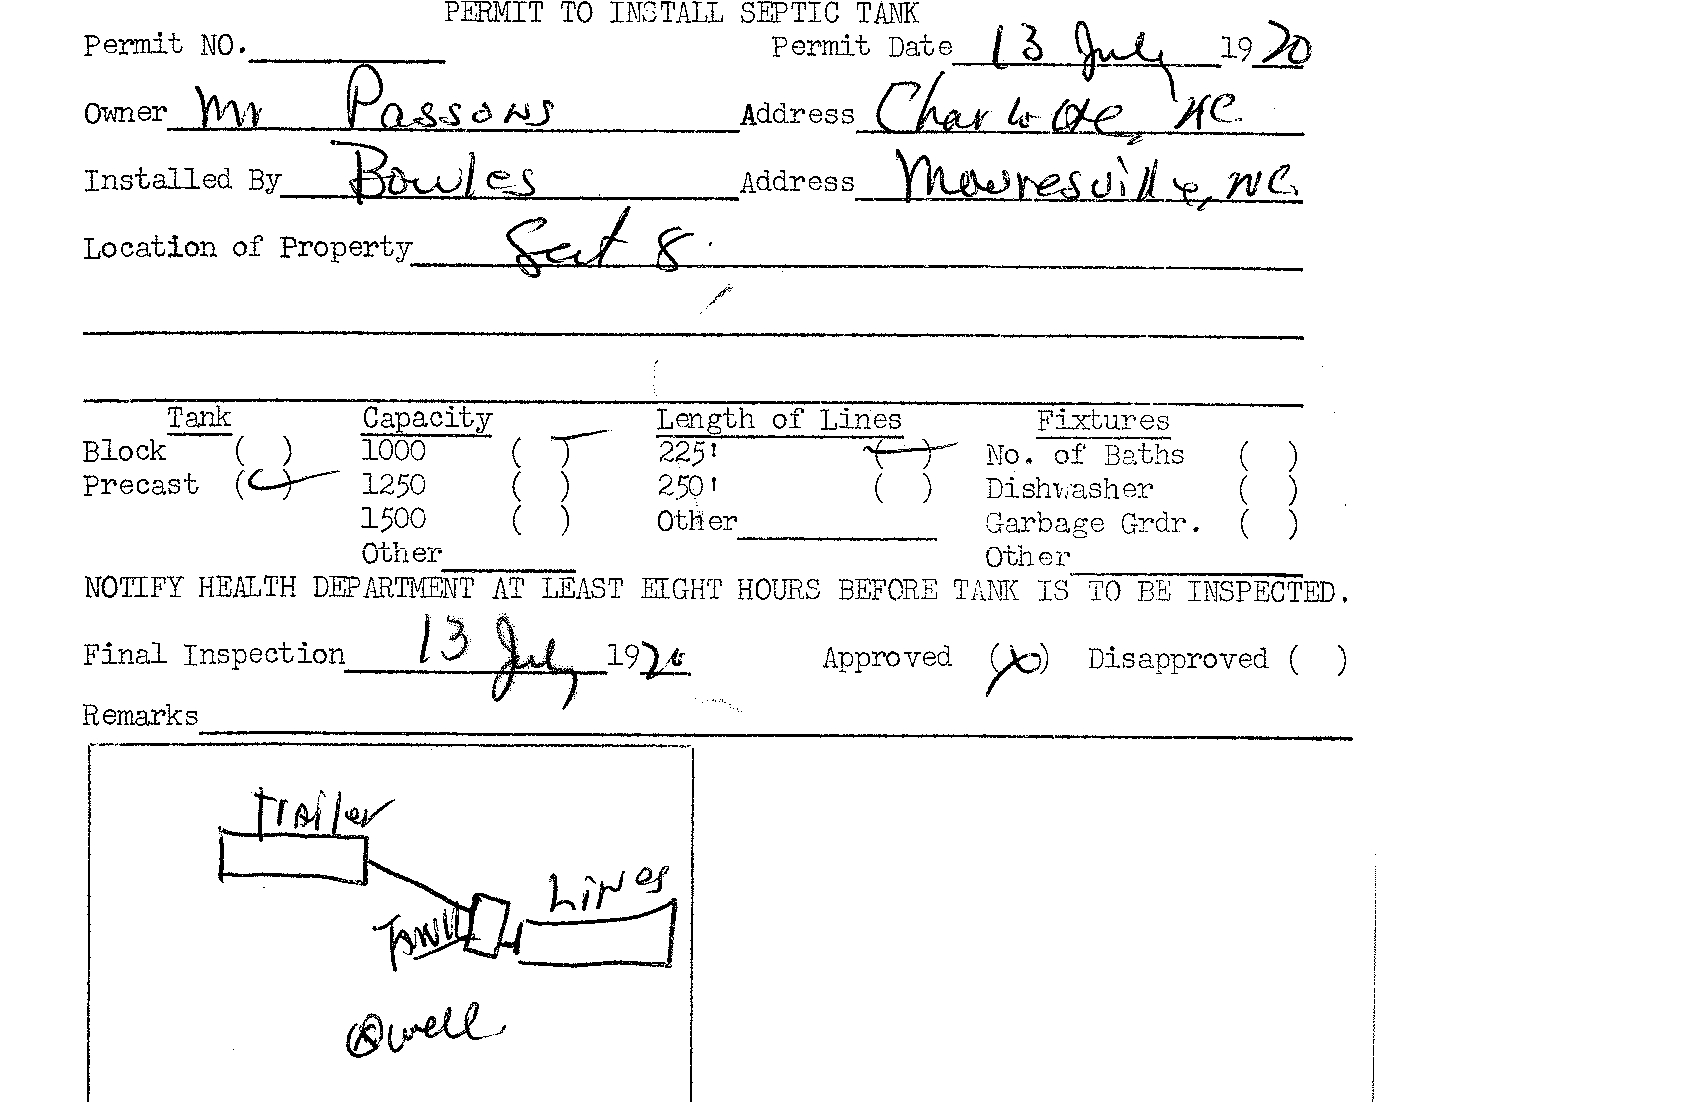 PERMIT TO INSTALL SEPTIC TANK
Permit NO. Permit Date 13 July 1970
Owner Mr Passons Address Charlotte, NC.
Installed By Bowles Address Mooresville, NC.
Location of Property Sect 8.
Tank Capacity Length of Lines Fixtures
Block ( ) 1000 ( ) 225' ( ) No. of Baths ( )
Precast ( ) 1250 ( ) 250' ( ) Dishwasher ( )
1500 ( ) Other Garbage Grdr. ( )
Other Other
NOTIFY HEALTH DEPARTMENT AT LEAST EIGHT HOURS BEFORE TANK IS TO BE INSPECTED.
Final Inspection 13 July 1970 Approved (X) Disapproved ( )
Remarks
Trailer
Lines
Tank
well